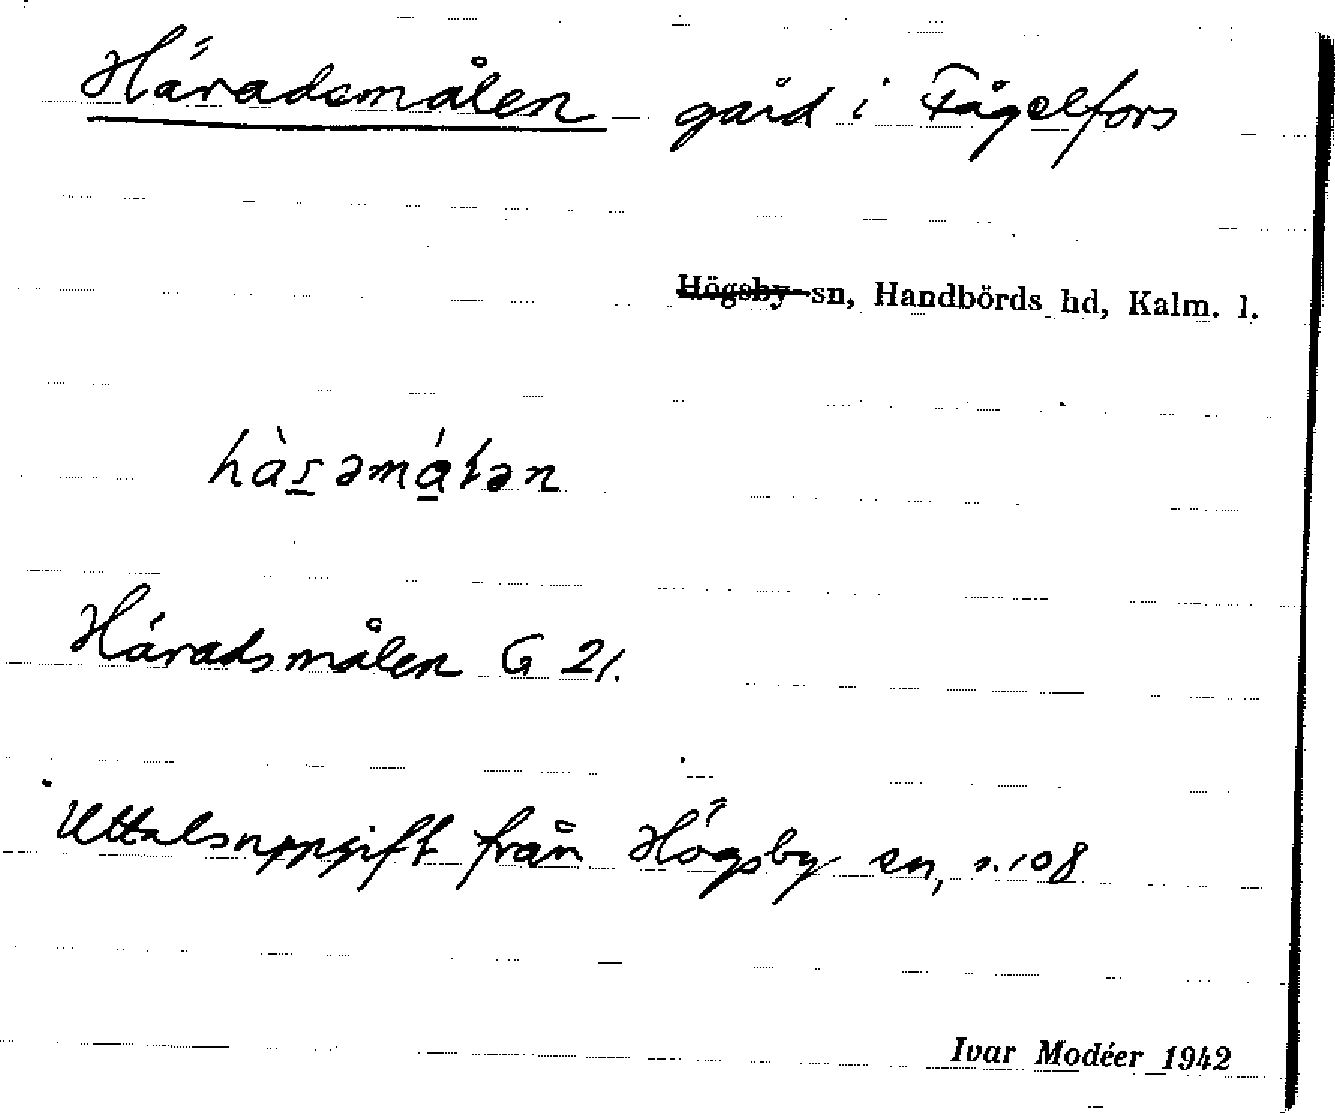 Häradsmålen gård i Fågelfors
Högsby sn, Handbörds hd, Kalm. l.
Häradsmålen G 21.
Uttalsuppgift från Högsby sn, s. 108
Ivar Modéer 1942